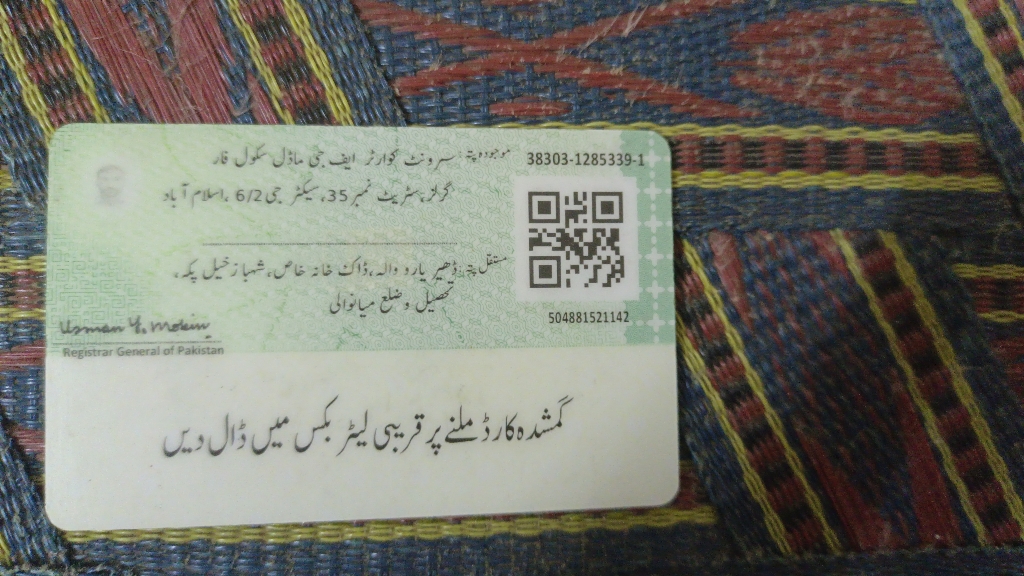 38303-1285339-1
موجودہ پتہ: سرونٹ کوارٹر ایف جی ماڈل سکول فار
گرلز، سٹریٹ نمبر 35، سیکٹر جی 6/2 ،اسلام آباد
مستقل پتہ: ڈھیر یارو والہ، ڈاک خانہ خاص، شہباز خیل پکہ،
تحصیل و ضلع میانوالی
504881521142
Usman Y. Mobin
Registrar General of Pakistan
گمشدہ کارڈ ملنے پر قریبی لیٹر بکس میں ڈال دیں